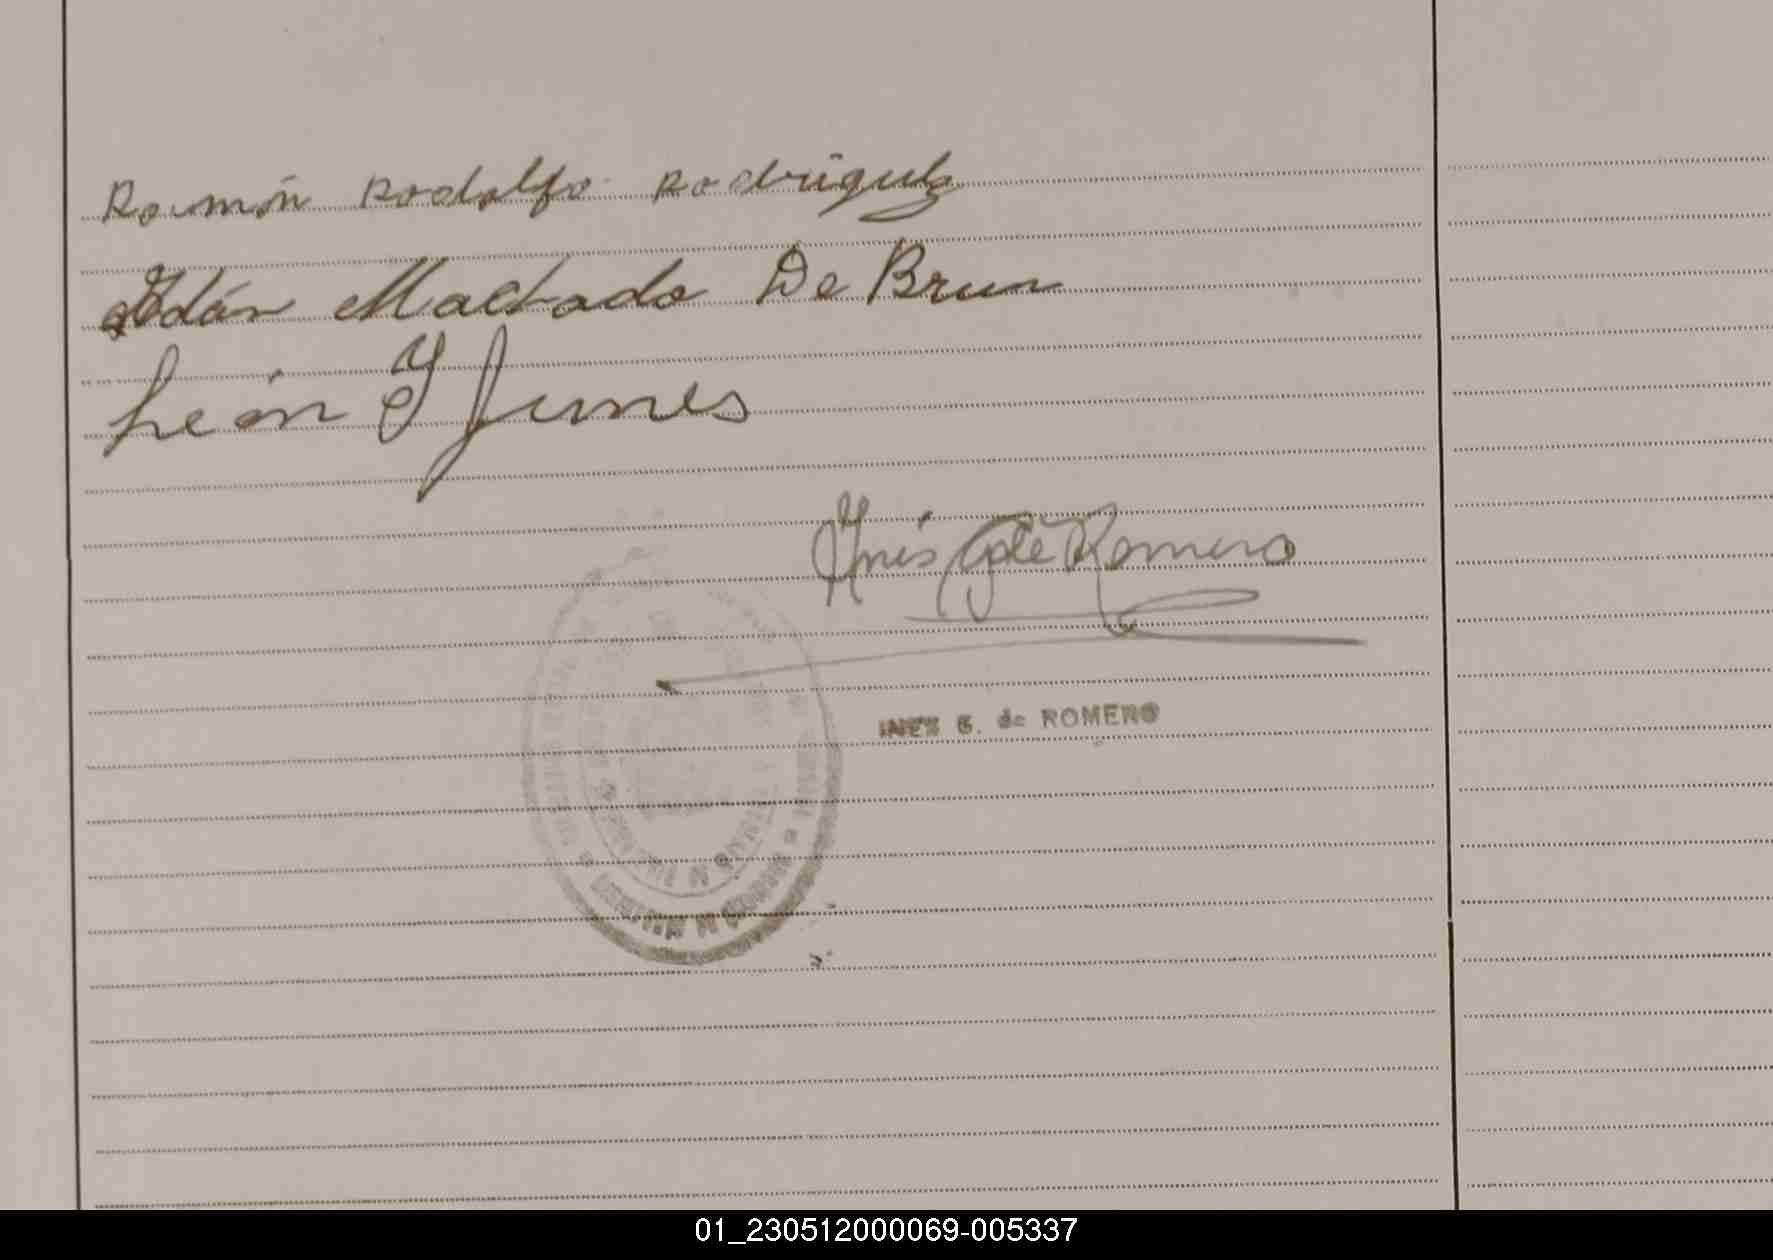 Ramón Rodolfo Rodriguez
Adán Machado De Brun
León Y Junes
Inés G de Romero
INES G. de ROMERO
01_230512000069-005337